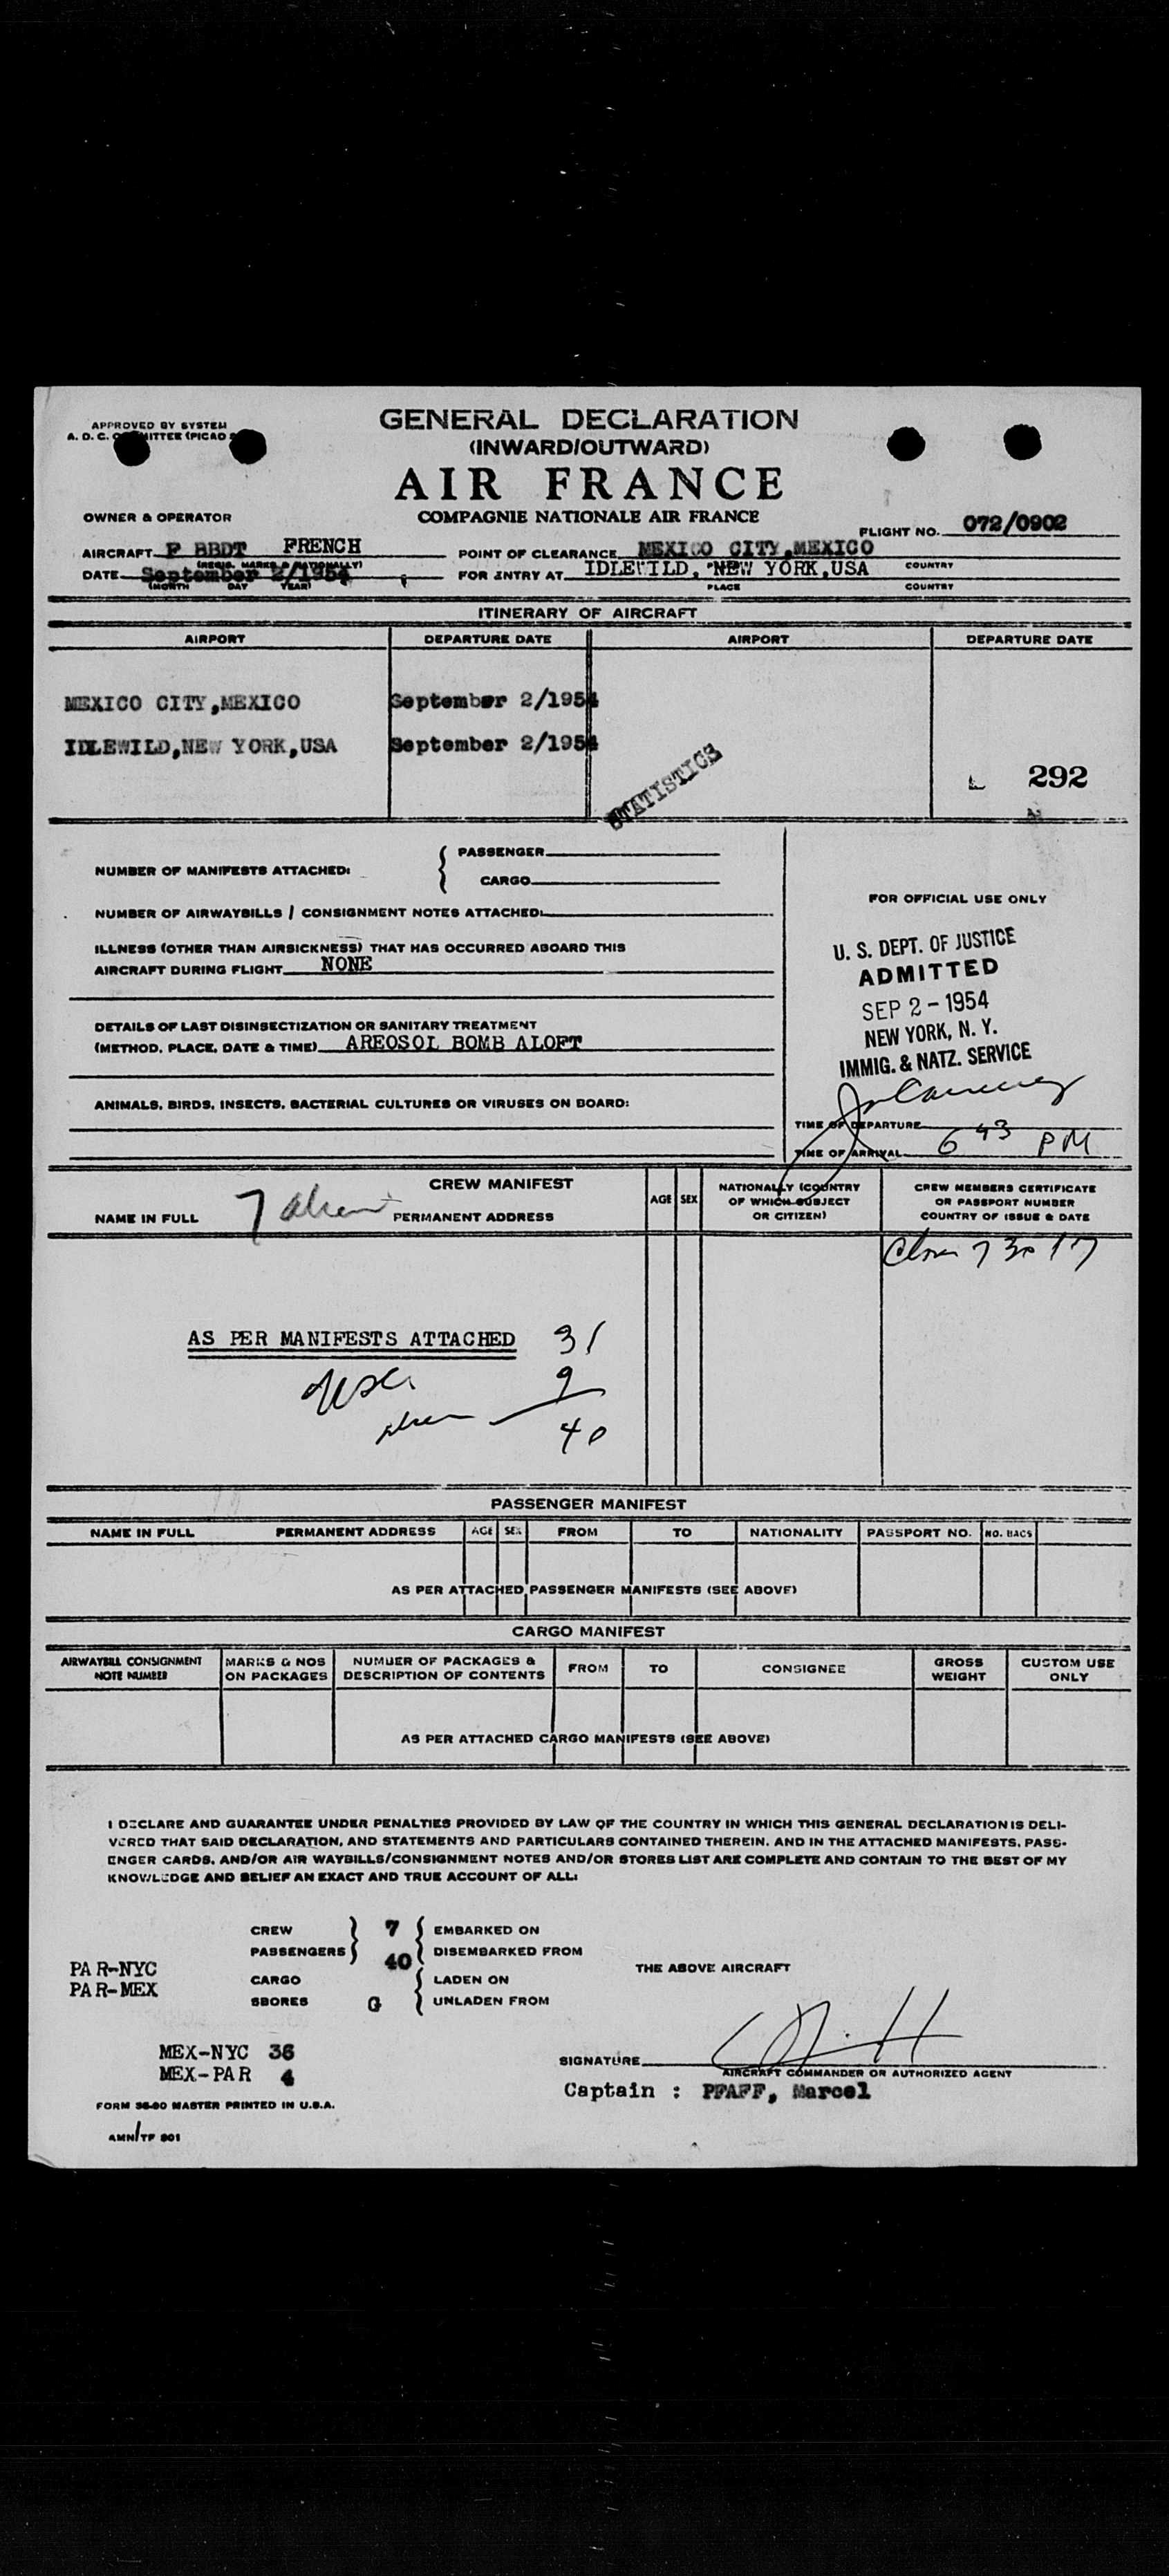 APPROVED BY SYSTEM
A. D. C. (PICAO
GENERAL DECLARATION
(INWARD/OUTWARD)
AIR FRANCE
OWNER & OPERATOR
COMPAGNIE NATIONALE AIR FRANCE
FLIGHT NO. 072/0902
AIRCRAFT F BBDT FRENCH
POINT OF CLEARANCE MEXICO CITY,MEXICO
(REGIS. MARKS & NATIONALLY)
COUNTRY
DATE September 2/1954
FOR ENTRY AT IDLEWILD, NEW YORK,USA
(MONTH DAY YEAR)
PLACE COUNTRY
ITINERARY OF AIRCRAFT
AIRPORT DEPARTURE DATE AIRPORT DEPARTURE DATE
MEXICO CITY,MEXICO September 2/1954
IDLEWILD,NEW YORK,USA September 2/1954
STATISTICS
292
NUMBER OF MANIFESTS ATTACHED:
PASSENGER
CARGO
NUMBER OF AIRWAYBILLS / CONSIGNMENT NOTES ATTACHED:
ILLNESS (OTHER THAN AIRSICKNESS) THAT HAS OCCURRED ABOARD THIS
AIRCRAFT DURING FLIGHT NONE
DETAILS OF LAST DISINSECTIZATION OR SANITARY TREATMENT
(METHOD, PLACE, DATE & TIME) AREOSOL BOMB ALOFT
ANIMALS, BIRDS, INSECTS, BACTERIAL CULTURES OR VIRUSES ON BOARD:
FOR OFFICIAL USE ONLY
U. S. DEPT. OF JUSTICE
ADMITTED
SEP 2 - 1954
NEW YORK, N. Y.
IMMIG. & NATZ. SERVICE
TIME OF DEPARTURE
TIME OF ARRIVAL 6 43 PM
CREW MANIFEST
7
NAME IN FULL PERMANENT ADDRESS
AGE SEX
NATIONALLY (COUNTRY
OF WHICH SUBJECT
OR CITIZEN)
CREW MEMBERS CERTIFICATE
OR PASSPORT NUMBER
COUNTRY OF ISSUE & DATE
AS PER MANIFESTS ATTACHED 31
9
40
PASSENGER MANIFEST
NAME IN FULL PERMANENT ADDRESS AGE SEX FROM TO NATIONALITY PASSPORT NO. NO. BAGS
AS PER ATTACHED PASSENGER MANIFESTS (SEE ABOVE)
CARGO MANIFEST
AIRWAYBILL CONSIGNMENT
NOTE NUMBER
MARKS & NOS
ON PACKAGES
NUMBER OF PACKAGES &
DESCRIPTION OF CONTENTS
FROM TO CONSIGNEE
GROSS
WEIGHT
CUSTOM USE
ONLY
AS PER ATTACHED CARGO MANIFESTS (SEE ABOVE)
I DECLARE AND GUARANTEE UNDER PENALTIES PROVIDED BY LAW OF THE COUNTRY IN WHICH THIS GENERAL DECLARATION IS DELI-
VERED THAT SAID DECLARATION, AND STATEMENTS AND PARTICULARS CONTAINED THEREIN, AND IN THE ATTACHED MANIFESTS, PASS-
ENGER CARDS, AND/OR AIR WAYBILLS/CONSIGNMENT NOTES AND/OR STORES LIST ARE COMPLETE AND CONTAIN TO THE BEST OF MY
KNOWLEDGE AND BELIEF AN EXACT AND TRUE ACCOUNT OF ALL:
CREW 7 EMBARKED ON
PASSENGERS 40 DISEMBARKED FROM
PAR-NYC
THE ABOVE AIRCRAFT
CARGO LADEN ON
PAR-MEX
SBORES G UNLADEN FROM
MEX-NYC 36
MEX-PAR 4
SIGNATURE
AIRCRAFT COMMANDER OR AUTHORIZED AGENT
Captain : PFAFF, Marcel
FORM 36-90 MASTER PRINTED IN U.S.A.
AMN/TF 801